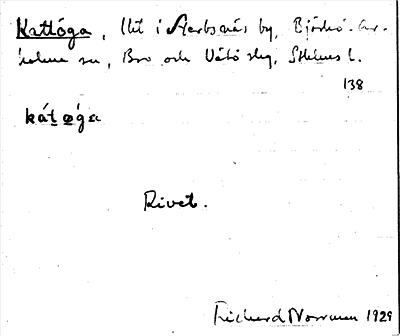 Kattöga, litt i Herbsnäs by, Björkö-Ar-
holma sn, Bro och Vätö slg, Sthlms l.
138
kát ǿ̣ga
Rivet.
Richard Norrman 1929